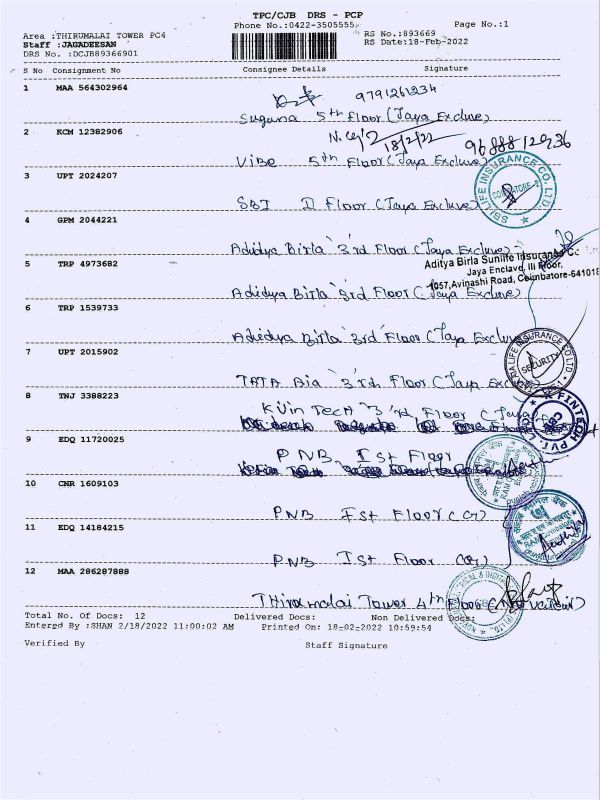 TPC/CJB DRS - PCP
Phone No.:0422-3505555
Page No.:1
Area :THIRUMALAI TOWER PC4
RS No.:893669
Staff :JAGADEESAN
RS Date:18-Feb-2022
DRS No. :DCJB89366901
S No Consignment No Consignee Details Signature
1 MAA 564302964
9791261234
Suguna 5th Floor (Jaya Exclure)
2 KCM 12382906
18/2/22
Vibe 5th Floor (Jaya Exclure)
3 UPT 2024207
SBI LIFE INSURANCE CO. LTD
COIMBATORE
SBI II Floor (Jaya Exclure)
4 GPM 2044221
Adidya Birla 3'rd Floor (Jaya Exclure)
Aditya Birla Sunlife Insurance Co
Jaya Enclave, III Floor,
1057,Avinashi Road, Coimbatore-641018
5 TRP 4973682
Adidya Birla 3rd Floor (Jaya Exclure)
6 TRP 1539733
Adidya Birla 3rd Floor (Jaya Exclure)
7 UPT 2015902
LIFE INSURANCE CO LTD
SECURITY
TATA Aia 3'rd Floor (Jaya
8 TNJ 3388223
Kvin Tech 3'rd Floor (Jaya
FINTECH PVT. L
9 EDQ 11720025
PNB Ist Floor
10 CNR 1609103
PNB Ist Floor (Cr)
11 EDQ 14184215
PNB Ist Floor
12 MAA 286287888
Thirumalai Tower 4th Floor
Total No. Of Docs: 12 Delivered Docs: Non Delivered Docs:
Entered By :SHAN 2/18/2022 11:00:02 AM Printed On: 18-02-2022 10:59:54
Verified By Staff Signature